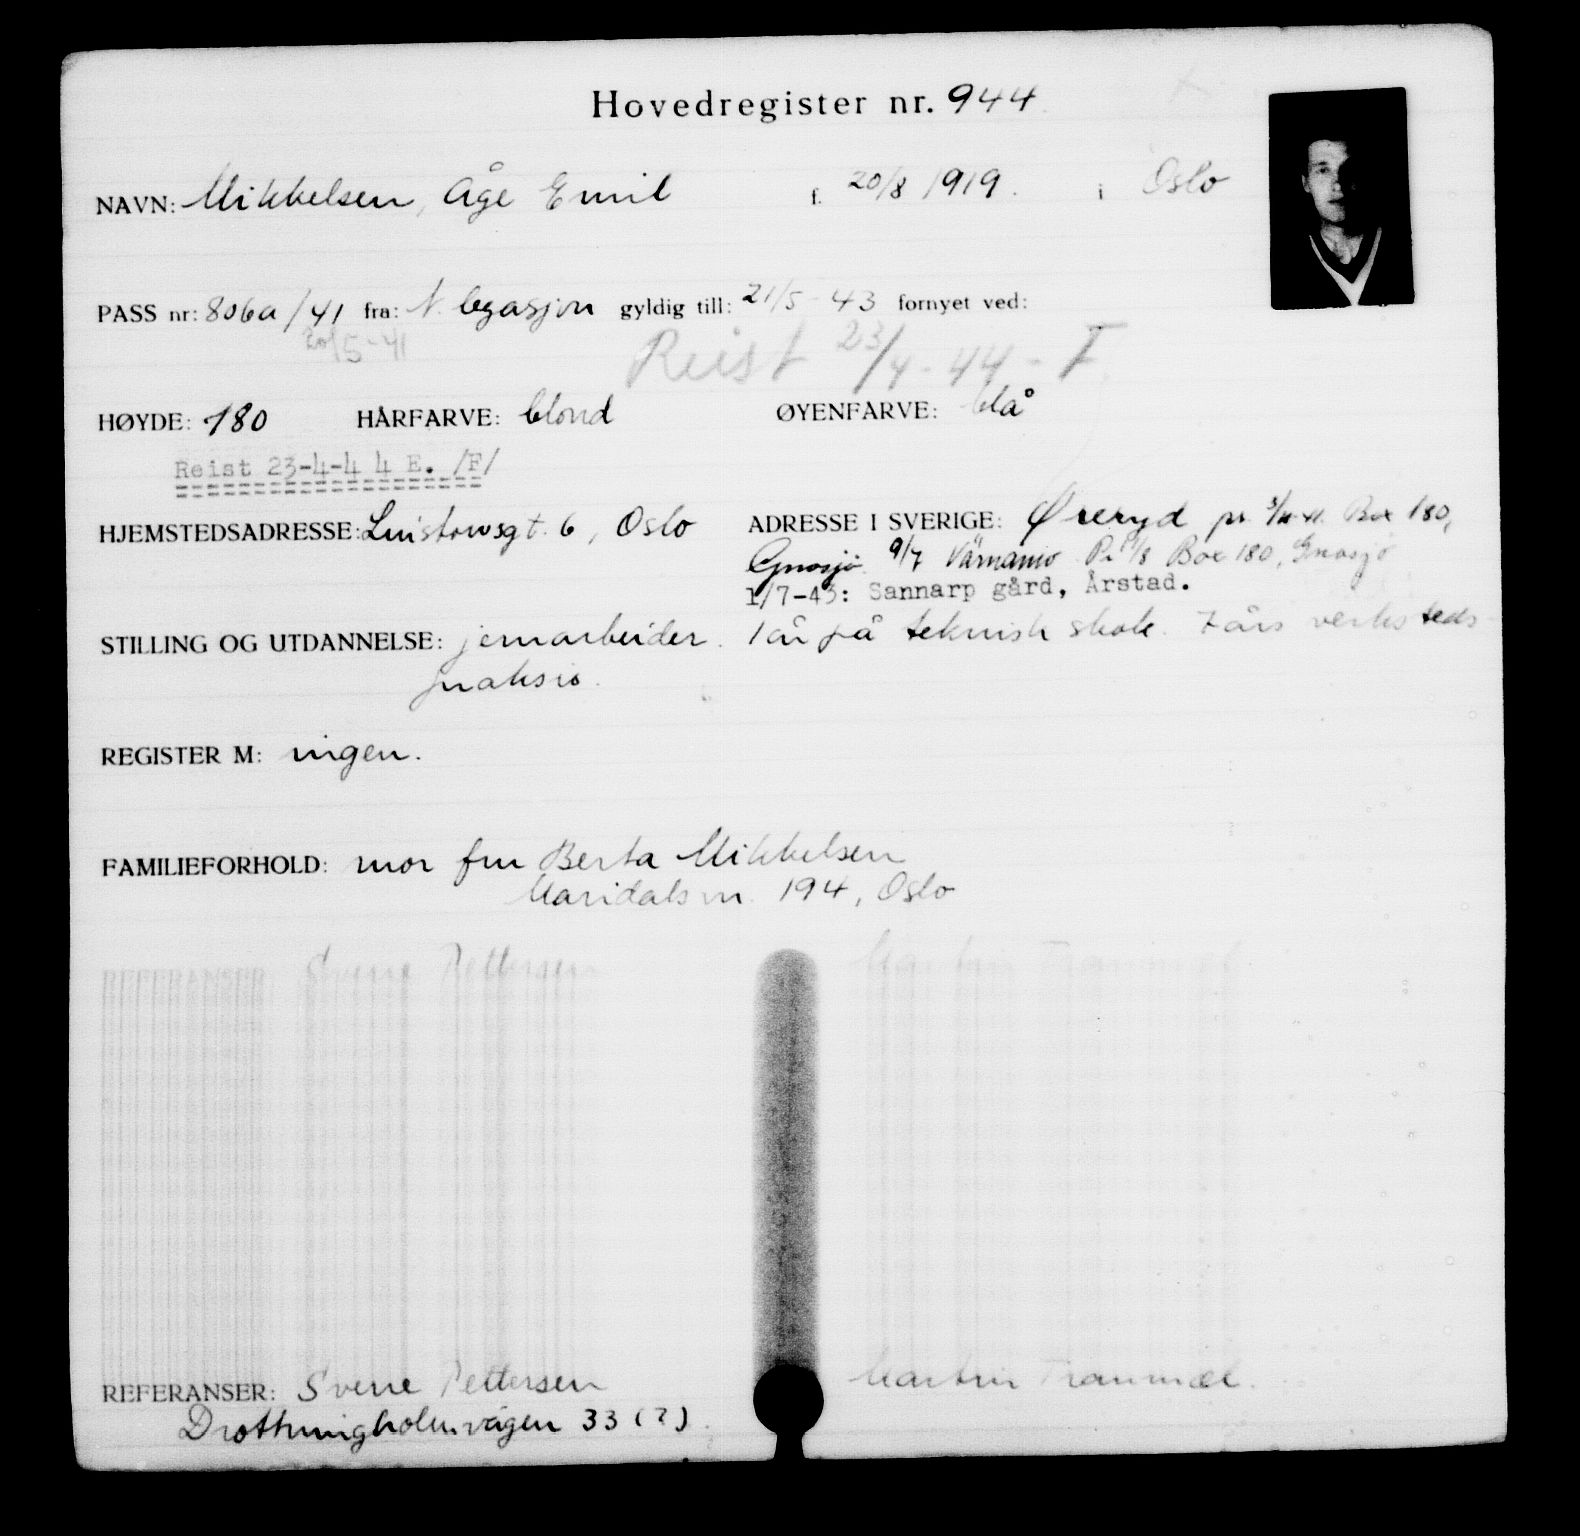 Hovedregister nr. 944
NAVN: Mikkelsen, Åge Emil f. 20/8 1919. i Oslo
PASS nr: 806a/41 fra: N. legasjon gyldig till: 21/5-43 fornyet ved:
20/5-41 Reist 23/4-44 - F
HØYDE: 180 HÅRFARVE: blond ØYENFARVE: blå
Reist 23-4-44 E. /F/
HJEMSTEDSADRESSE: Linstowsgt. 6, Oslo ADRESSE I SVERIGE: Øreryd pr. Box 180,
Gnosjö 9/7 Värnamo Pr 1/8 Box 180, Gnosjö
1/7-43: Sannarp gård, Årstad.
STILLING OG UTDANNELSE: jernarbeider. 1 år på teknisk skole. 7 års verksteds-
praksis.
REGISTER M: ingen.
FAMILIEFORHOLD: mor fru Berta Mikkelsen
Maridalsvn. 194, Oslo
REFERANSER: Sverre Pettersen Martin Tranmæl.
Drottningholmsvägen 33 (?)